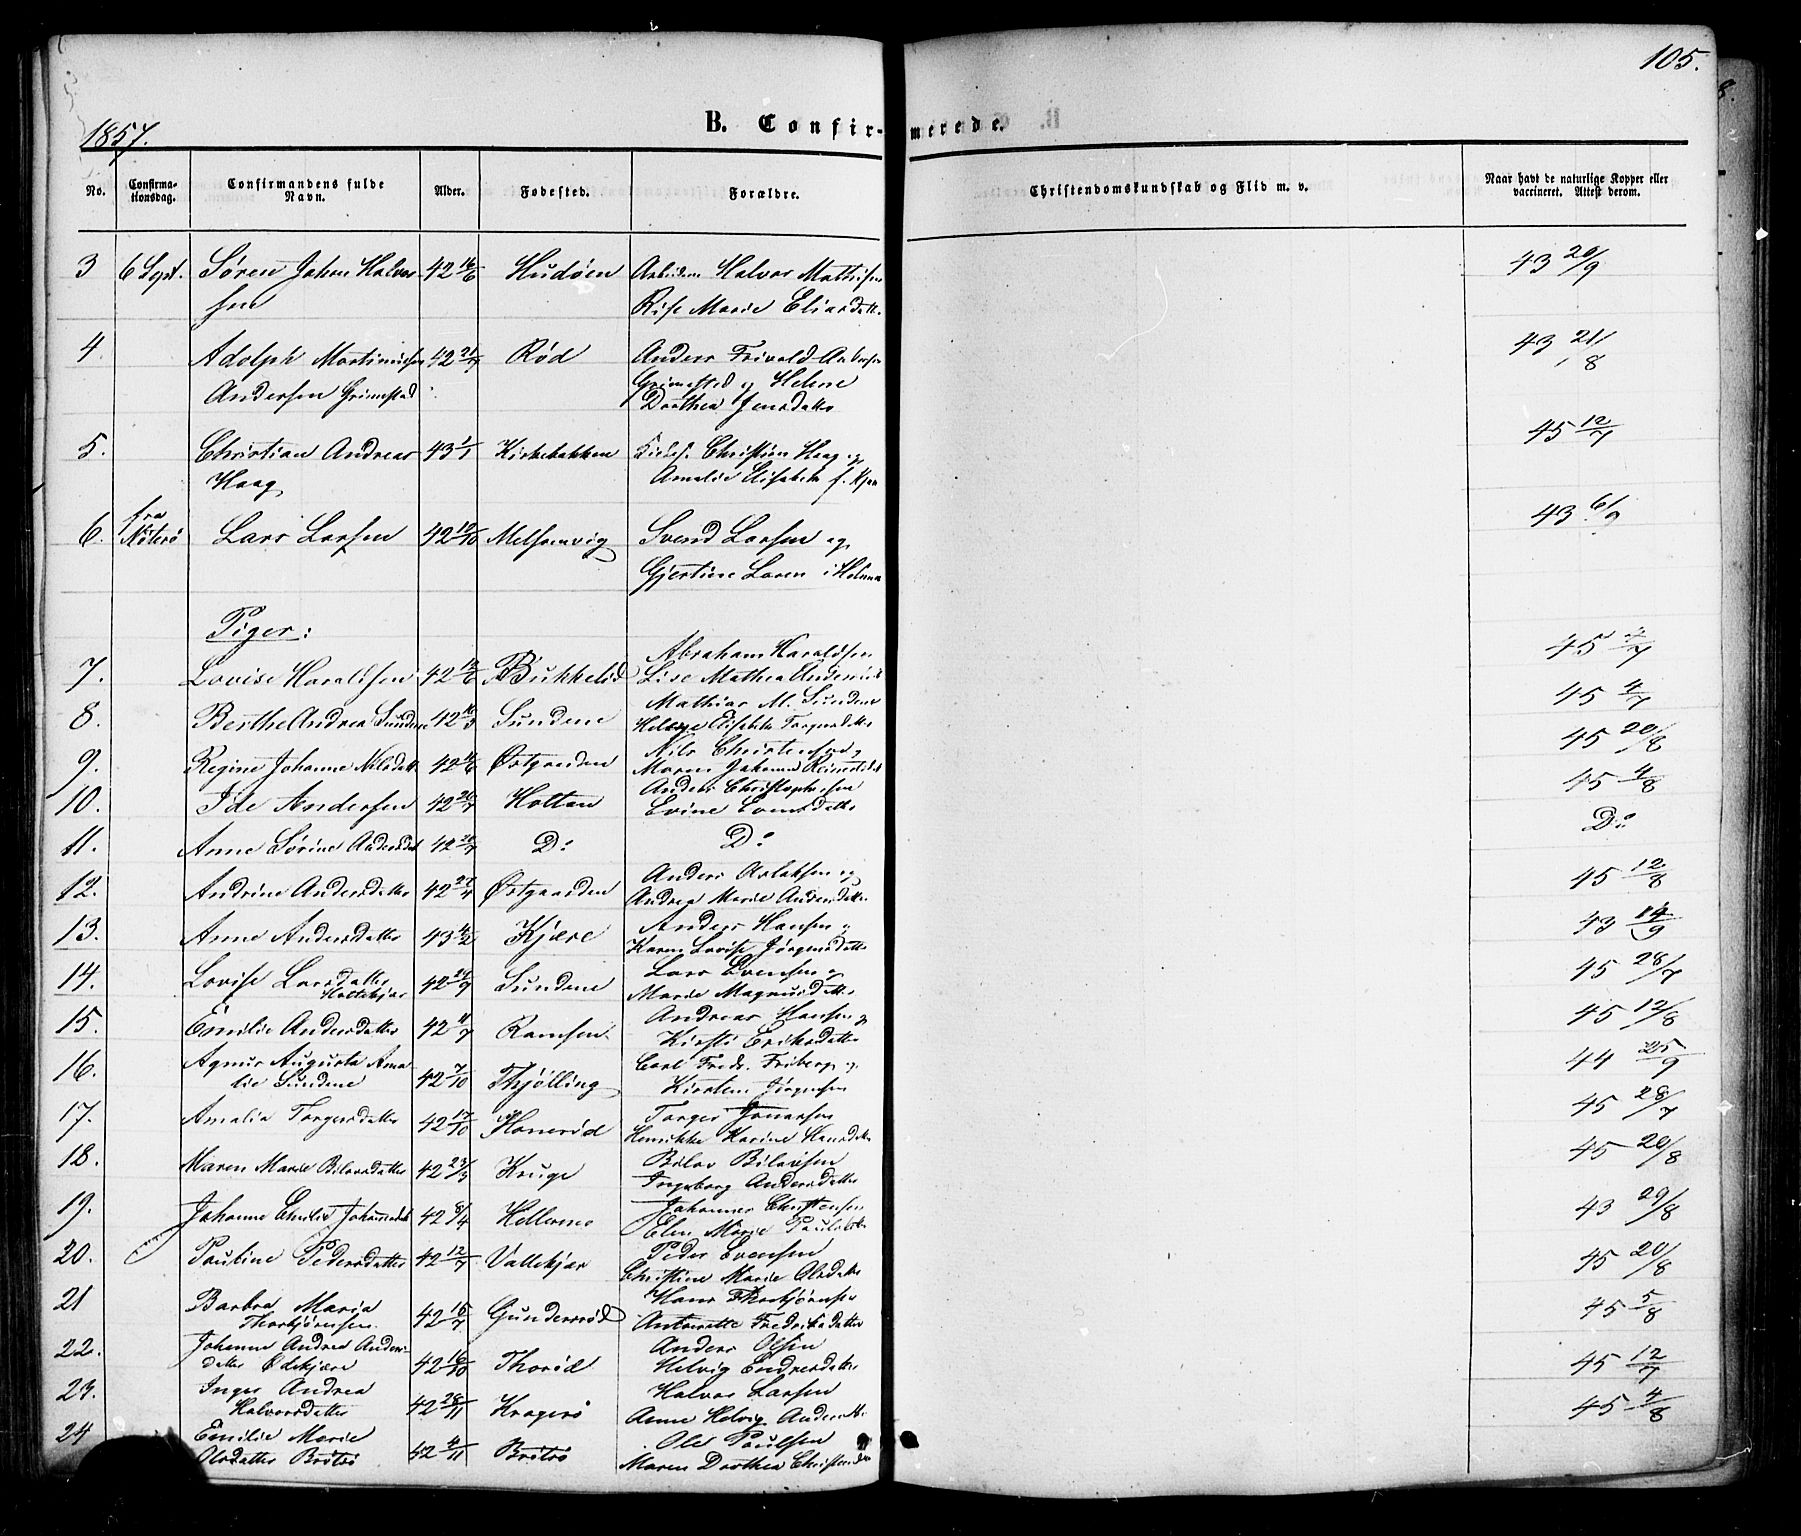 105.
1857.
B. Confirmerede.
No.
Confirmationsdag.
Confirmandens fulde Navn.
Alder.
Fødested.
Forældre.
Christendomskundskab og Flid m. v.
Naar havt de naturlige Kopper eller
vaccineret. Attest derom.
3 6 Sept. Søren Johan Halvor 42 16/6 Hudøen Halvor Mathisen 43 20/9
sen Marie
4. Adolph Martinusen 42 21/7 Rød Anders Trivold 43 21/8
Andersen Grimestad Grimestad og Helene
Dorthea Jensdatter
5. Christian Andreas 43 1/1 Kirkebakken Christian Haag og 45 12/7
Haag Amalie Elisabeth f.
6. fra Nøterø Lars Larsen 42 12/10 Melsomvig Svend Larsen og 43 6/9
Gjertine Laren i
Piger:
7. Lovise Haraldsen 42 12/6 Bukkelid Abraham Haraldsen 45 4/7
Lise Mathea
8. Berthe Andrea Sundene 42 16/3 Sundene Mathias M. Sundene 45 4/7
Helene Elisabeth Torgersdatter
9. Regine Johanne Nilsdatt 42 4/6 Østgaarden Nils Christensen og 45 20/8
Maren Johanne
10. Ide Andersen 42 20/7 Holtan Anders Christophersen 45 4/8
Evine Evensdatter
11. Anne Sørine Andersdat 42 20/7 Do Do Do
12. Andrine Andersdatter 42 27/4 Østgaarden Anders Aslaksen og 45 12/8
Andrea Marie Andersdatter
13. Anne Andersdatter 43 4/2 Kjære Anders Hansen og 43 14/9
Karen Lovise Jørgensdatter
14. Lovise Larsdatter 42 27/9 Sundene Lars Evensen og 45 28/7
Holtekjær Marie Magnusdatter
15. Emilie Andersdatter 42 11/7 Ramsen Andreas Hansen og 45 12/8
Kirsti Eriksdatter
16. Agnus Augusta Ama 42 7/10 Thjølling Carl Fredr. Friberg og 44 25/9
lie Sundene Kirstene Jørgensen
17. Amalia Torgersdatter 42 17/10 Honerød Torger Jonassen 45 28/7
Henrikke Karine Hansdatter
18. Maren Marie Bilovsdatter 42 23/5 Kruge 45 20/8
Ingeborg Andersdatter
19. Johanne Emilie Johannesdat 42 8/4 Hellemo Johannes Christensen 43 29/8
Elen Marie
20. Pauline Pedersdatter 42 12/7 Vallekjær Peder Evensen 45 20/8
Christine Marie Olsdatter
21 Barbra Maria 42 15/7 Gundersrød Hans Thorbjørnsen 45 5/8
Thorbjørnsen Antonette Fredrikadatter
22. Johanne Andrea Anders 42 16/10 Thorød Anders Olsen 45 12/7
datter Ødekjære Helvig Endresdatter
23. Inger Andrea 42 28/11 Kragerø Halvor Larsen 45 4/8
Halvorsdatter Anne Helvig
24 Emilie Marie 42 4/11 Brøtsø Ole Paulsen
Olsdatter Brøtsø Maren Dorthea